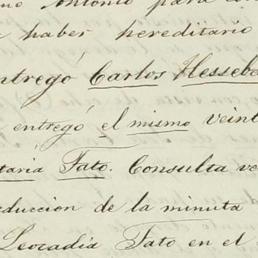 Antonio para
haber hereditario
entregó Carlos Hesseb
entregó el mismo veint
taria Tato. Consulta ve
educcion de la minuta
Leocadia Tato en el